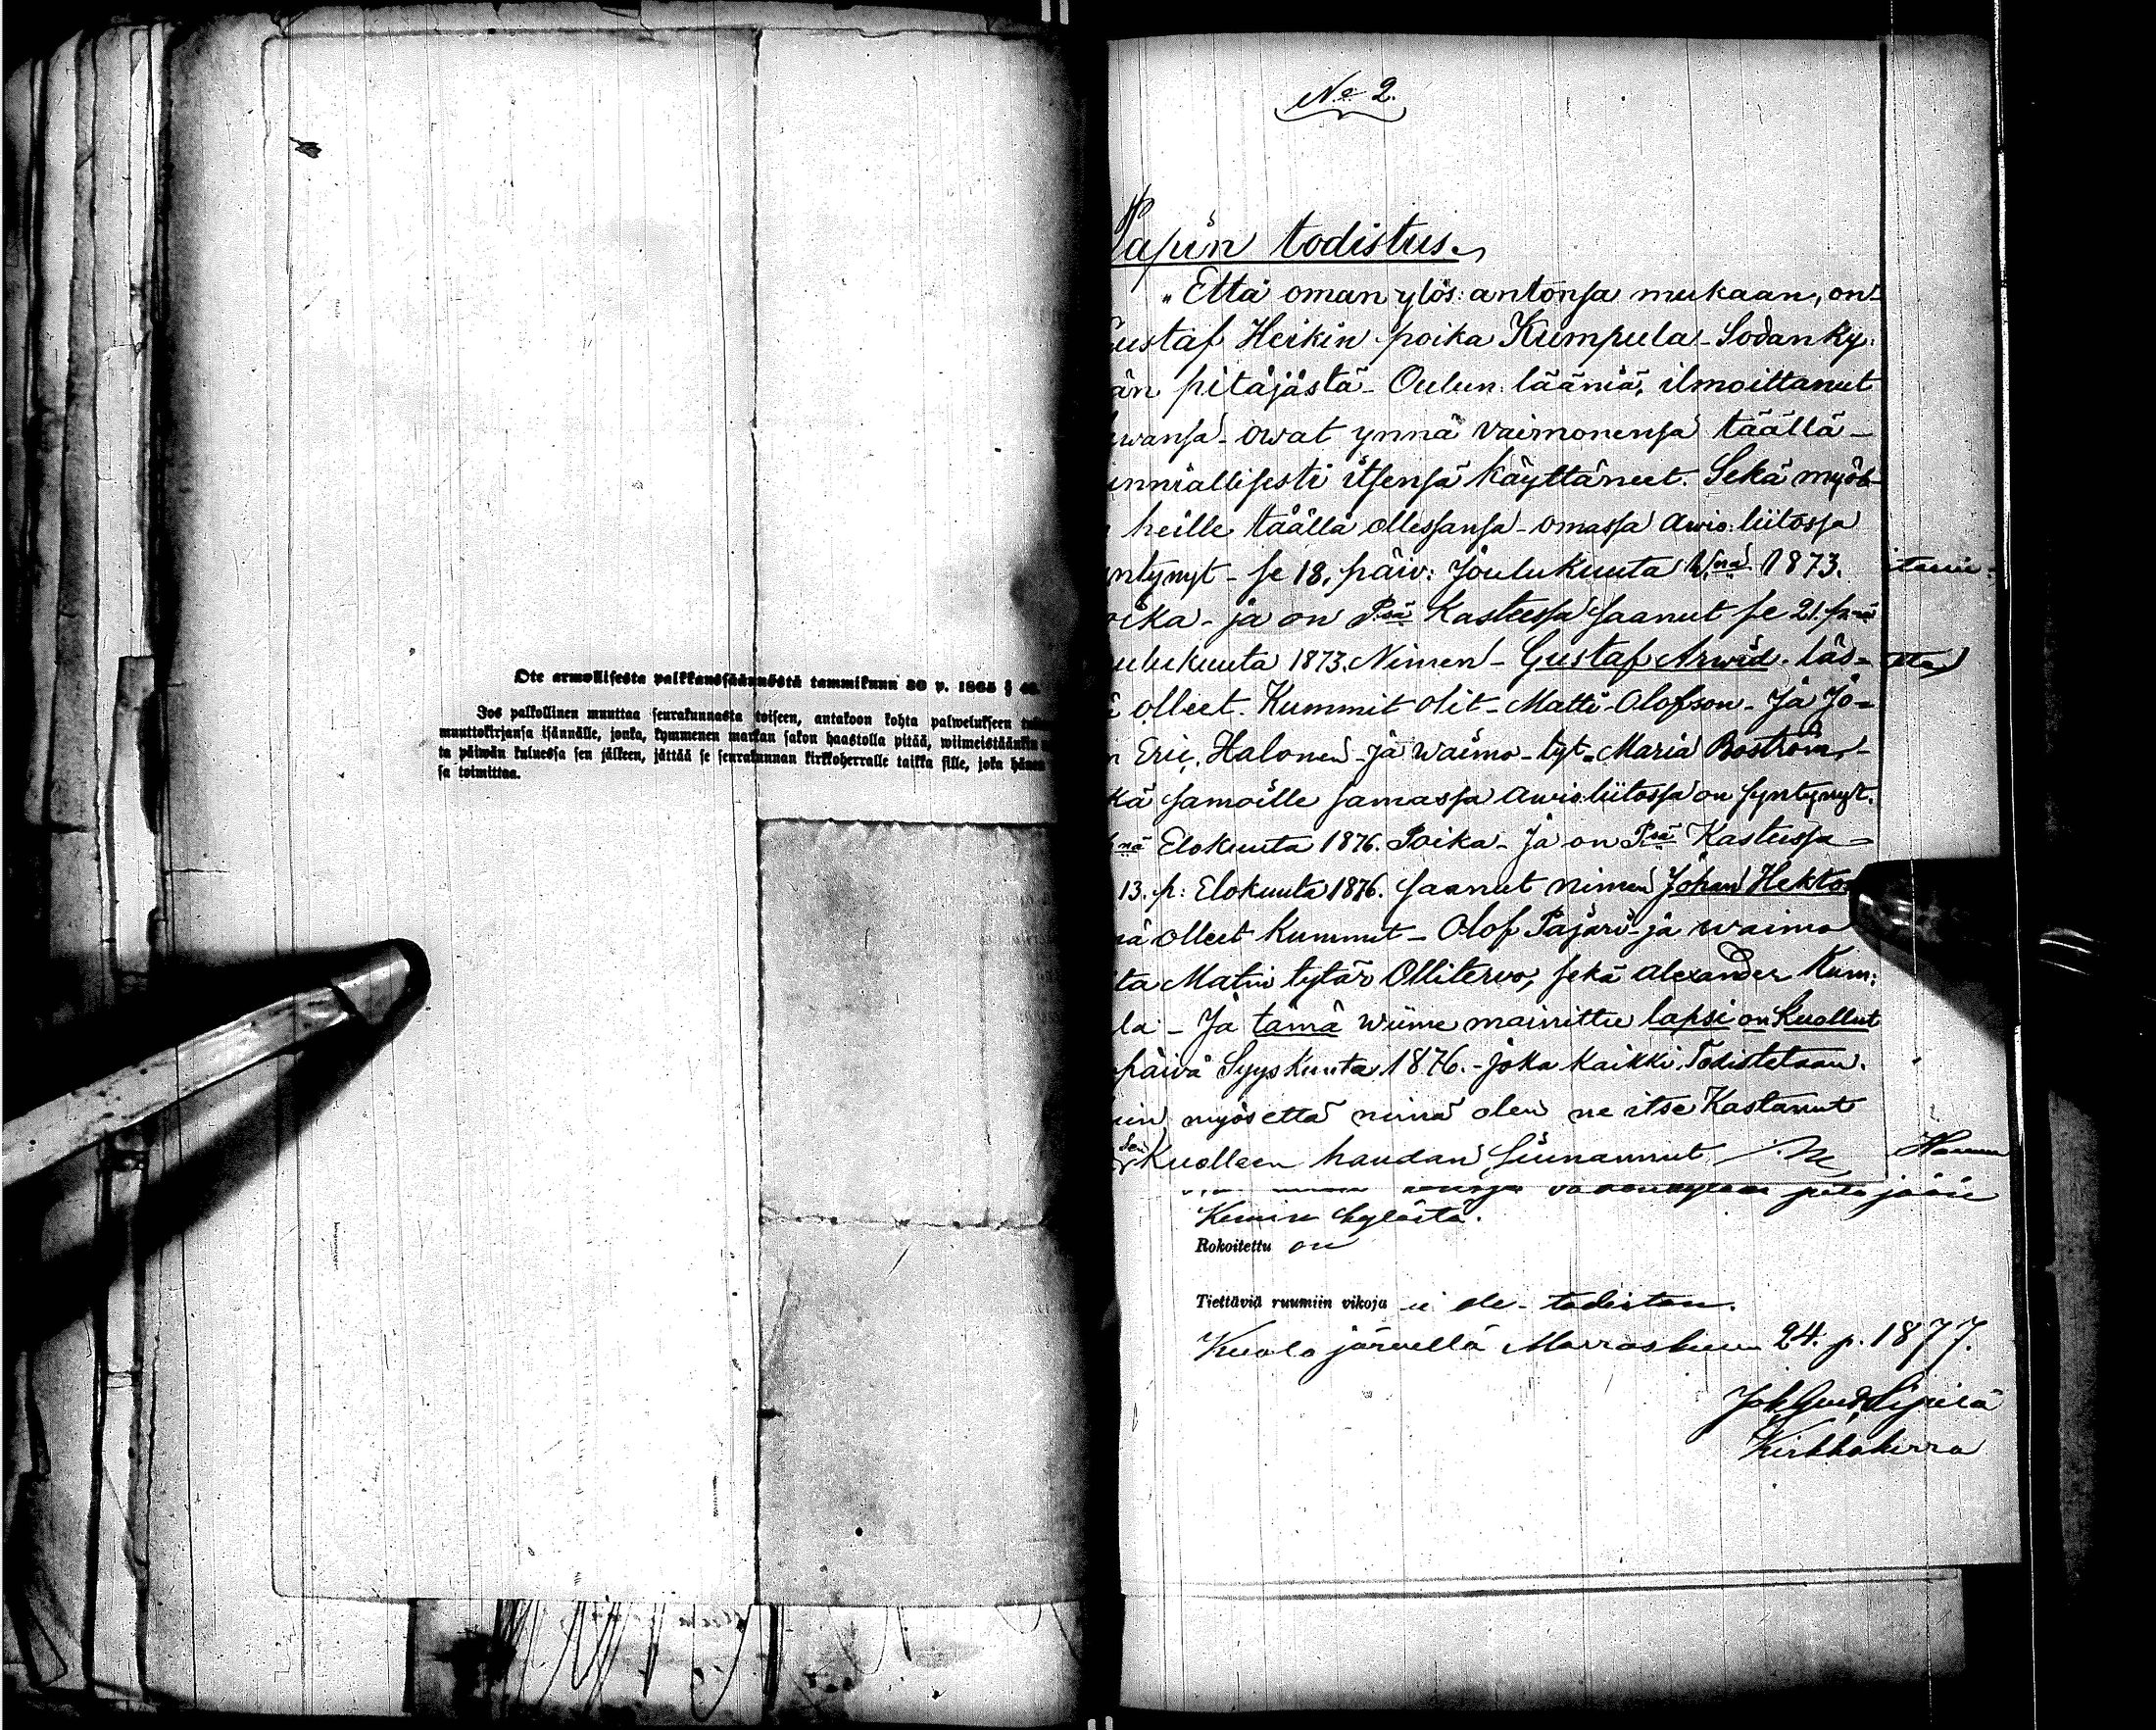 Ote armollisesta palkkaussäännöstä tammikuun 30 p. 1865 §
Jos palkollinen muuttaa seurakunnasta toiseen, antakoon kohta palwelukseen
muuttokirjansa isännälle, jonka, kymmenen markan sakon haastolla pitää, wiimeistäänkin
ta päiwän kuluessa sen jälkeen, jättää se seurakunnan kirkkoherralle taikka sille, joka hänen
sa toimittaa.
No 2.
Papin todistus.
"Että oman ylös: antonsa mukaan, on
ustaf Heikin poika Kumpula - Sodanky:
än pitäjästä - Oulun lääniä, ilmoittanut
wansa - owat ynnä vaimonensa täällä -
inniallisesti itsensä käyttäneet. Sekä myös-
heille täällä ollessansa - omassa awio: liitossa
ntynyt - se 18. päiv: Joulukuuta 1873.
oika - ja on Psä Kasteessa saanut se 21. pnä
ulukuuta 1873. Nimen - Gustaf Arwid. läs-
olleet. Kummit olit - Matti - Olofson - Ja Jo-
n Eric. Halonen - ja waimo - tyt. Maria Boström -
kä samoille samassa awioliitossa on syntynyt.
nä Elokuuta 1876. Poika - Ja on Psä Kasteessa -
13. p: Elokuuta 1876. saanut nimen Johan Hektor
nä olleet Kummit - Olof Pajari - ja waimo
ta Matin tytär Ollitervo, sekä Alexander Kum:
la - Ja tämä wiime mainittu lapsi on Kuollut
päivä Syyskuuta 1876. - joka kaikki Todistetaan.
uin myös että minä olen ne itse Kastanut
Sen Kuolleen haudan siunannut
pitäjään
Kemin kylästä.
Rokoitettu on
Tiettäviä ruumiin vikoja ei ole - todistan.
Kuolajärvellä Marraskuun 24. p. 1877.
Kirkkoherra